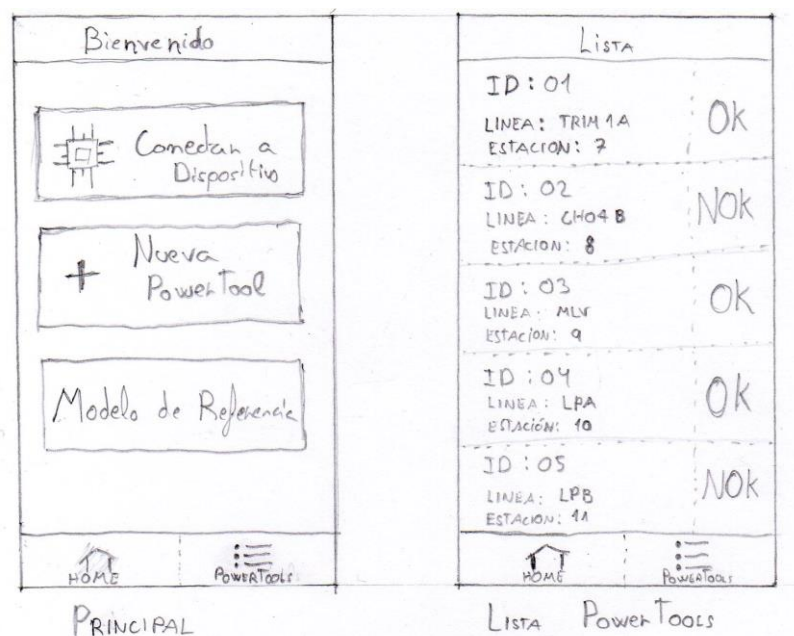 Bienvenido
Conectar a
Dispositivo
+ Nueva
PowerTool
Modelo de Referencia
HOME
POWERTOOLS
PRINCIPAL
LISTA
ID: 01
LINEA: TRIM 1A
ESTACION: 7
Ok
ID: 02
LINEA: CHO4 B
ESTACION: 8
NOk
ID: 03
LINEA: MLV
ESTACION: 9
Ok
ID: 04
LINEA: LPA
ESTACIÓN: 10
Ok
ID: 05
LINEA: LPB
ESTACION: 11
NOk
HOME
POWERTOOLS
LISTA POWER TOOLS